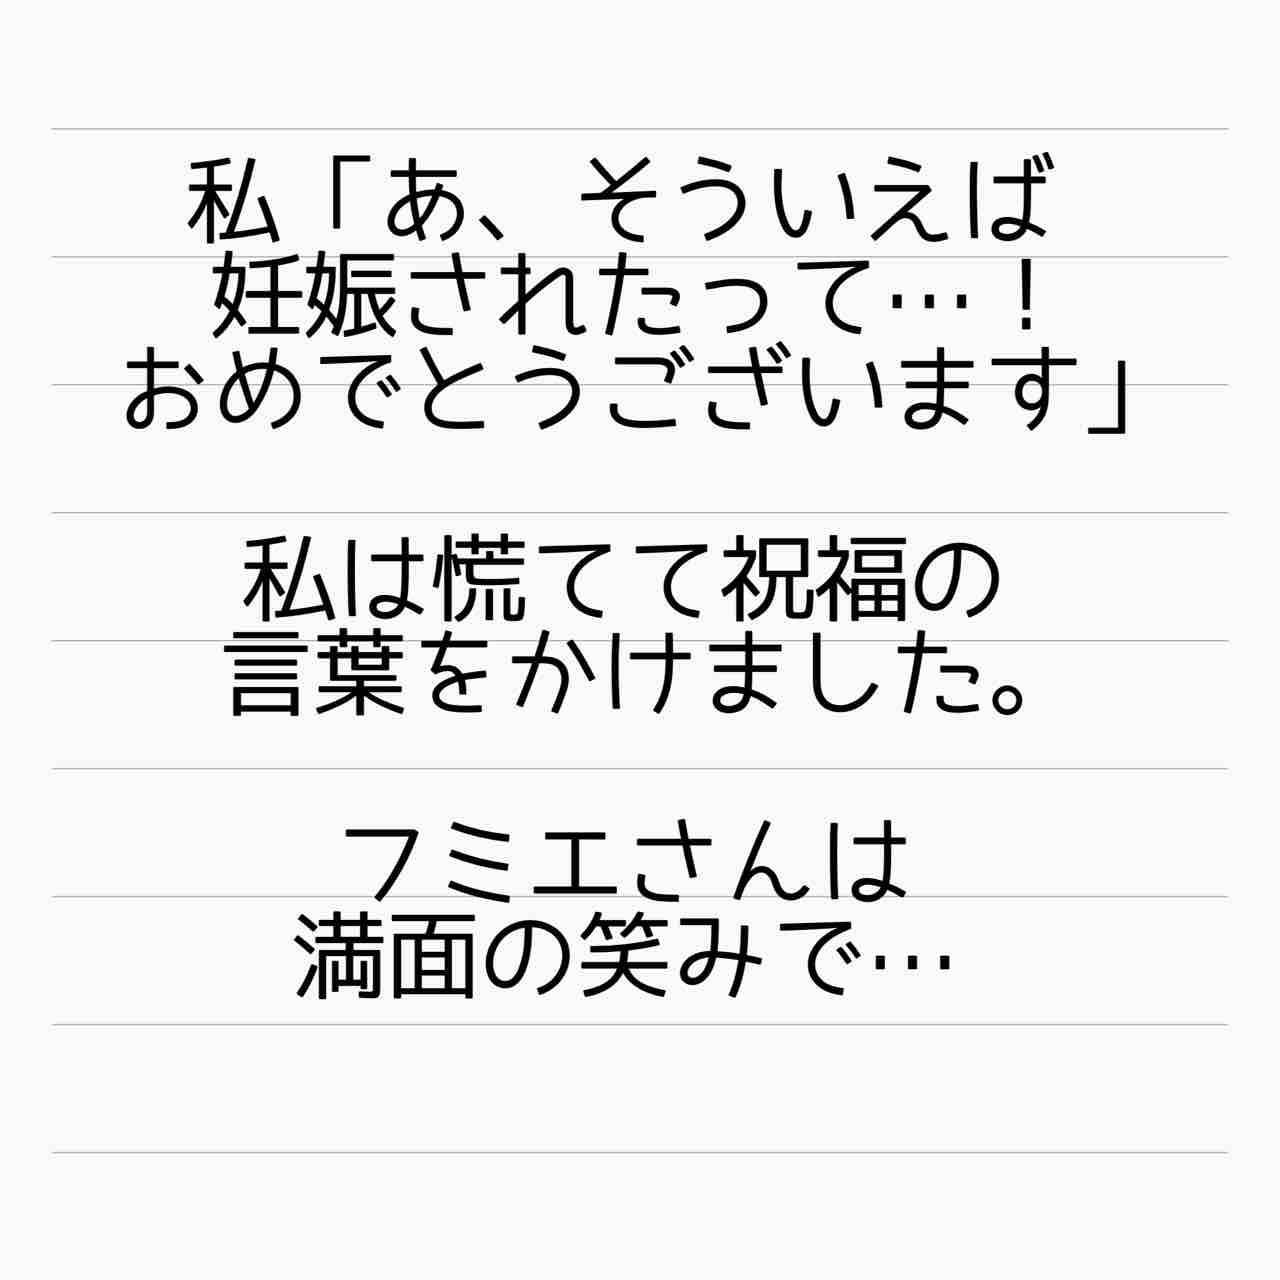 私「あ、そういえば
妊娠されたって…！
おめでとうございます」
私は慌てて祝福の
言葉をかけました。
フミエさんは
満面の笑みで…